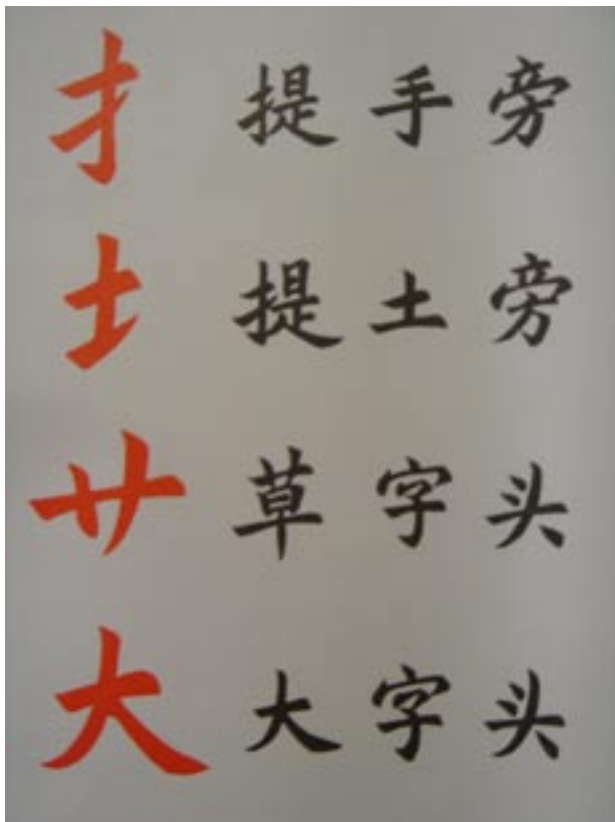 扌 提手旁
土 提土旁
艹 草字头
大 大字头